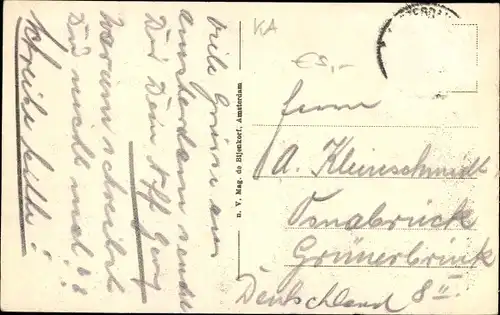 Viele Grüsse aus
Amsterdam sendet
Dir Dein
Warum schreibst
Du nicht mal?
Schreibe bitte!
n. V. Mag. de Bijenkorf, Amsterdam
KA
€5,-
Herrn
A. Kleinschmidt
Osnabrück
Grünerbrink
8 II
Deutschland